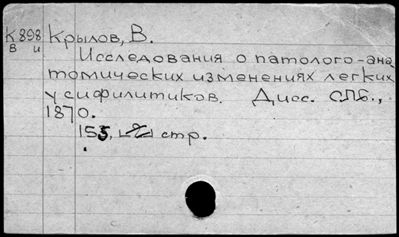 К898 Крылов, В.
В и
Исследования о патолого-ана
томических изменениях легких
у сифилитиков. Дисс. СПб.,
1870.
155, стр.